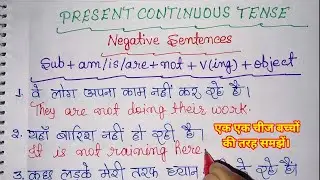 PRESENT CONTINUOUS TENSE
Negative Sentences
Sub + am/is/are + not + v(ing) + object
1. वे लोग अपना काम नहीं कर रहे है।
They are not doing their work.
एक एक चीज बच्चों
की तरह समझें।
2. यहाँ बारिश नहीं हो रही है।
It is not raining here
3. कुछ लड़के मेरी तरफ ध्यान नहीं दे रहे है।